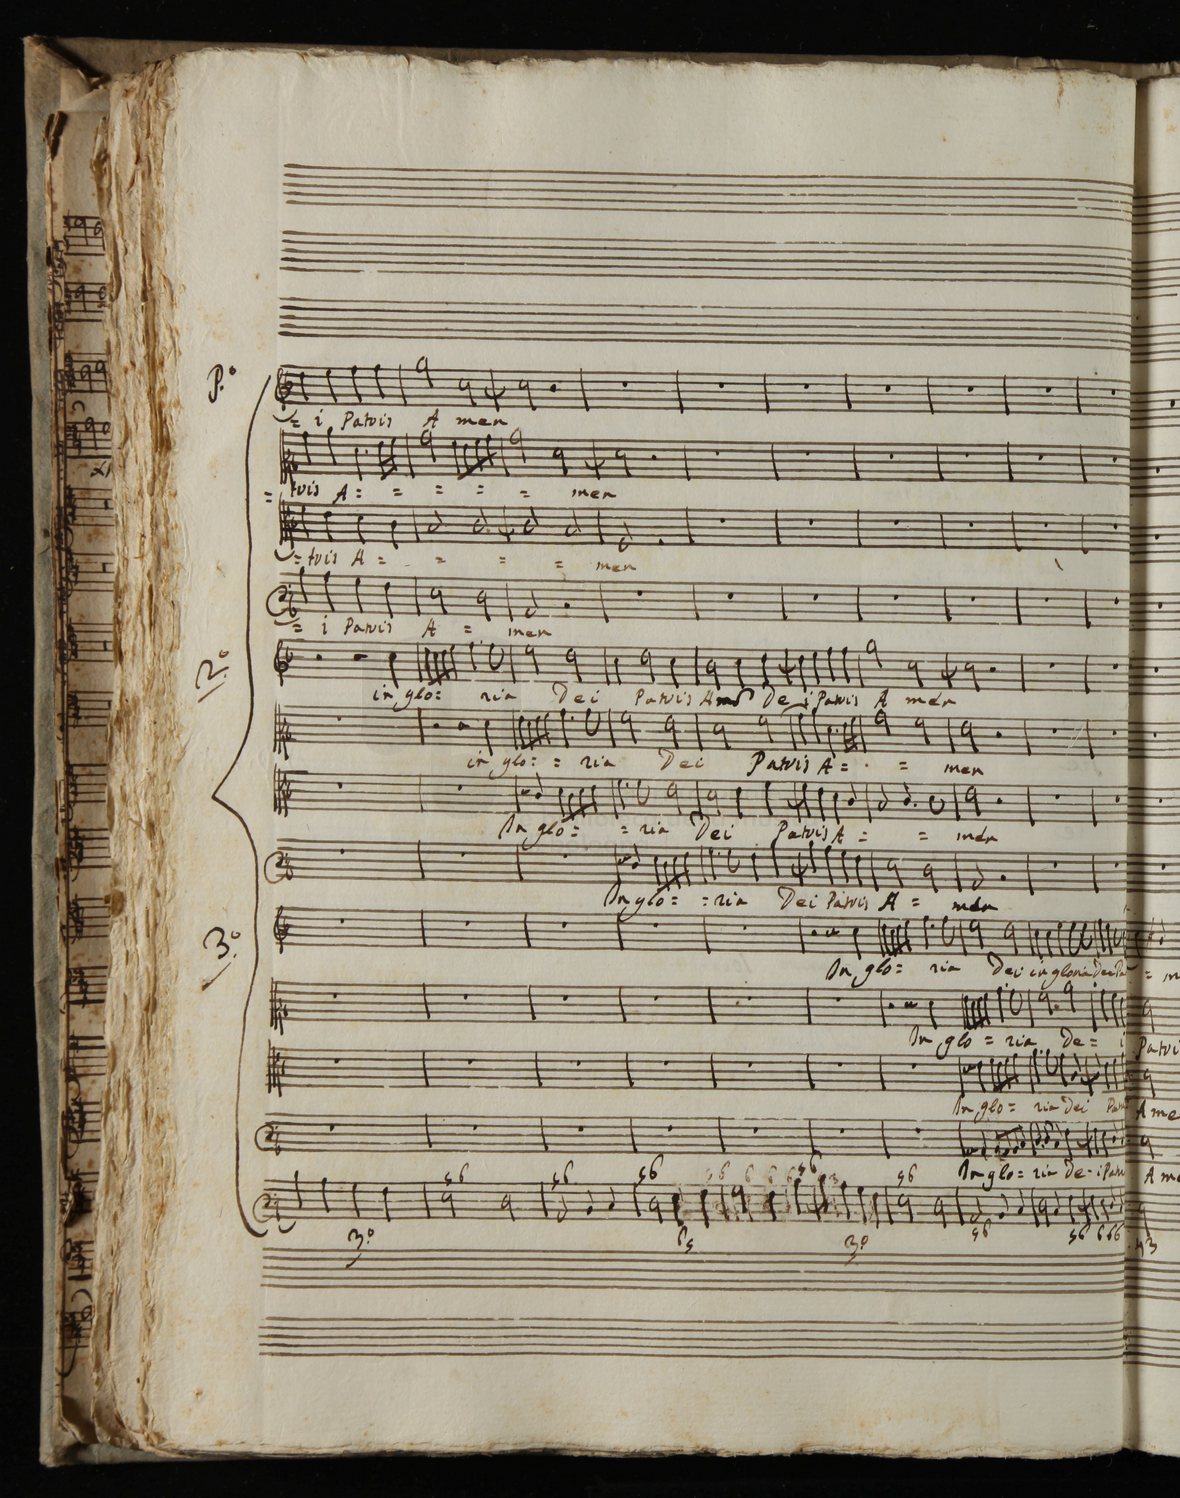 P.º
= i Patris A men
= tris A = = = = = men
= tris A = = = = men
= i Patris A = men
2.º
in glo = ria Dei Patris Dei Patris A men
in glo = = ria Dei Patris A = = men
In glo = = ria Dei Patris A = = men
In glo = = ria Dei Patris A = men
3.º
In glo = ria Dei in gloria Dei Pa
In glo = ria De = i
In glo = ria Dei Patri
In glo = ria De = i Patri
56 56 56 56 6 6 6 56 56
3.º 3º 56 56 666